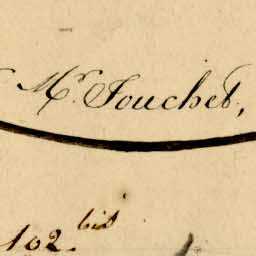 Mr. Fouchet,
102. bis